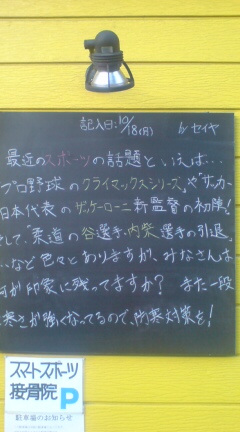 記入日:10/18(月) by セイヤ
最近のスポーツの話題といえば…
プロ野球のクライマックスシリーズ。や「サッカー
日本代表のザッケローニ新監督の初陣!
そして、柔道の谷選手、内柴選手の引退。
…など色々とありますが、みなさんは
何が印象に残ってますか? また一段
と寒さが強くなってるので、防寒対策を!
スマートスポーツ
接骨院 P
駐車場のお知らせ